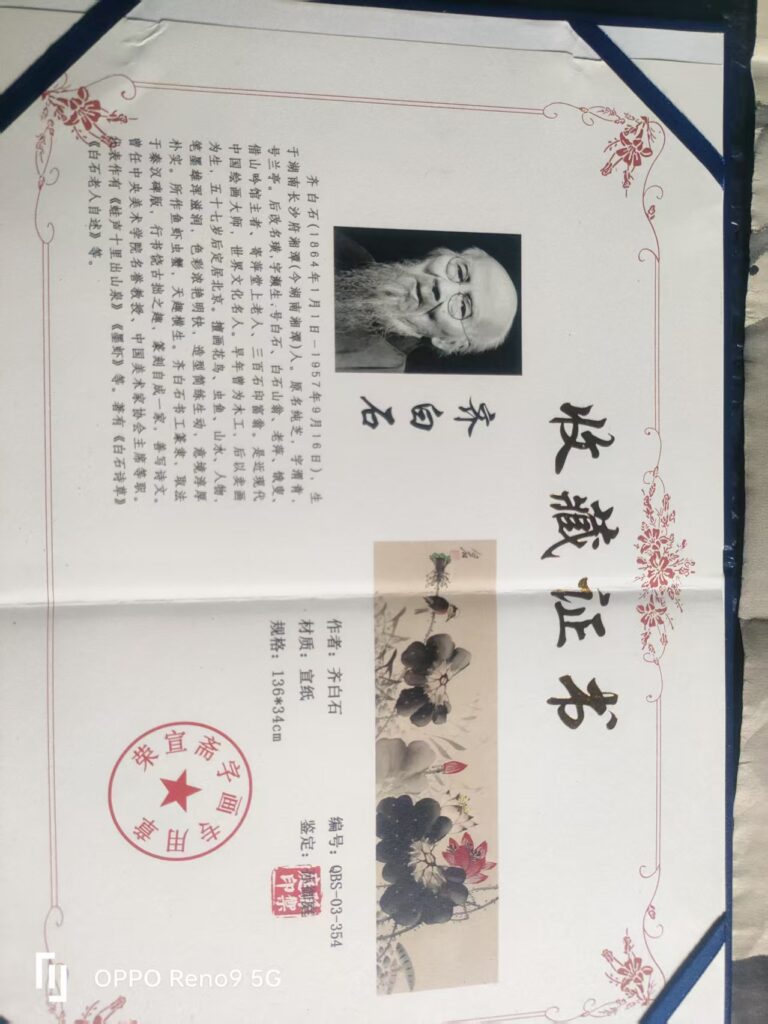 收藏证书
齐白石
齐白石(1864年1月1日-1957年9月16日),生
于湖南长沙府湘潭(今湖南湘潭)人。原名纯芝,字渭青,
号兰亭。后改名璜,字濒生,号白石、白石山翁、老萍、饿叟、
借山吟馆主者、寄萍堂上老人、三百石印富翁。是近现代
中国绘画大师,世界文化名人。早年曾为木工,后以卖画
为生,五十七岁后定居北京。擅画花鸟、虫鱼、山水、人物,
笔墨雄浑滋润,色彩浓艳明快,造型简练生动,意境淳厚
朴实。所作鱼虾虫蟹,天趣横生。齐白石书工篆隶,取法
于秦汉碑版,行书饶古拙之趣,篆刻自成一家,善写诗文。
曾任中央美术学院名誉教授、中国美术家协会主席等职。
代表作有《蛙声十里出山泉》《墨虾》等。著有《白石诗草》
《白石老人自述》等。
作者:齐白石
材质:宣纸
规格:136*34cm
编号:QBS-03-354
鉴定:
荣宣斋字画专用章
OPPO Reno9 5G